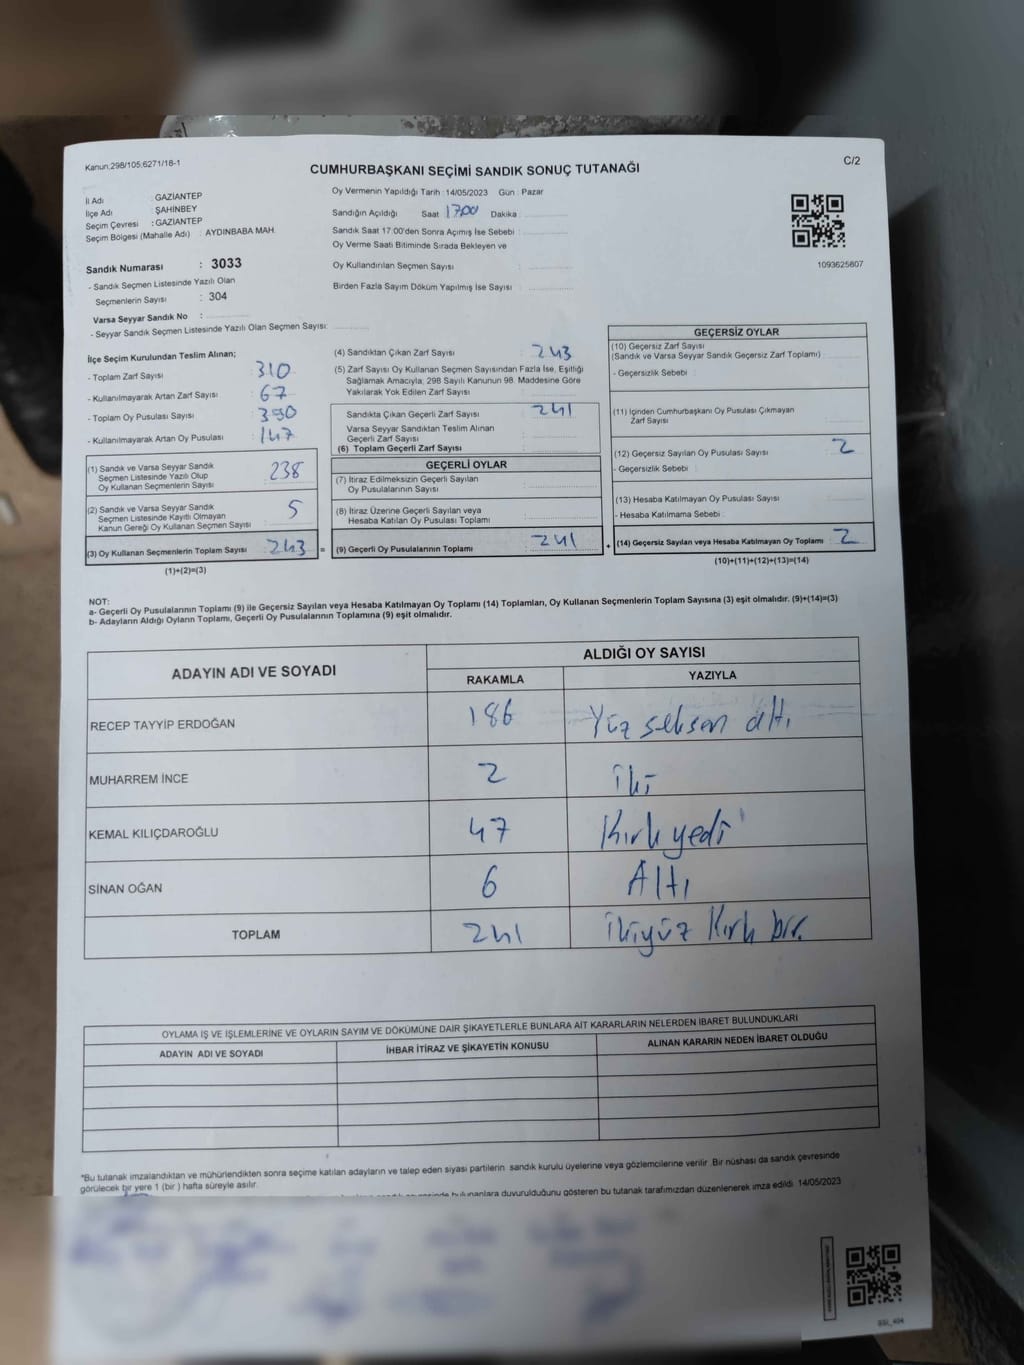 Kanun:298/105;6271/18-1
CUMHURBAŞKANI SEÇİMİ SANDIK SONUÇ TUTANAĞI
C/2
İl Adı : GAZİANTEP
İlçe Adı : ŞAHİNBEY
Seçim Çevresi : GAZİANTEP
Seçim Bölgesi (Mahalle Adı) : AYDINBABA MAH.
Sandık Numarası : 3033
- Sandık Seçmen Listesinde Yazılı Olan
Seçmenlerin Sayısı : 304
Varsa Seyyar Sandık No :
- Seyyar Sandık Seçmen Listesinde Yazılı Olan Seçmen Sayısı:
Oy Vermenin Yapıldığı Tarih : 14/05/2023 Gün : Pazar
Sandığın Açıldığı Saat 1700 Dakika :
Sandık Saat 17:00'den Sonra Açımış İse Sebebi :
Oy Verme Saati Bitiminde Sırada Bekleyen ve
Oy Kullandırılan Seçmen Sayısı
Birden Fazla Sayım Döküm Yapılmış İse Sayısı :
1093625807
İlçe Seçim Kurulundan Teslim Alınan;
- Toplam Zarf Sayısı : 310
- Kullanılmayarak Artan Zarf Sayısı : 67
- Toplam Oy Pusulası Sayısı : 390
- Kullanılmayarak Artan Oy Pusulası : 147
(1) Sandık ve Varsa Seyyar Sandık
Seçmen Listesinde Yazılı Olup
Oy Kullanan Seçmenlerin Sayısı 238
(2) Sandık ve Varsa Seyyar Sandık
Seçmen Listesinde Kayıtlı Olmayan
Kanun Gereği Oy Kullanan Seçmen Sayısı 5
(3) Oy Kullanan Seçmenlerin Toplam Sayısı 243 =
(1)+(2)=(3)
(4) Sandıktan Çıkan Zarf Sayısı : 243
(5) Zarf Sayısı Oy Kullanan Seçmen Sayısından Fazla İse, Eşitliği
Sağlamak Amacıyla; 298 Sayılı Kanunun 98. Maddesine Göre
Yakılarak Yok Edilen Zarf Sayısı :
Sandıkta Çıkan Geçerli Zarf Sayısı : 241
Varsa Seyyar Sandıktan Teslim Alınan
Geçerli Zarf Sayısı :
(6) Toplam Geçerli Zarf Sayısı :
GEÇERLİ OYLAR
(7) İtiraz Edilmeksizin Geçerli Sayılan
Oy Pusulalarının Sayısı :
(8) İtiraz Üzerine Geçerli Sayılan veya
Hesaba Katılan Oy Pusulası Toplamı :
(9) Geçerli Oy Pusulalarının Toplamı : 241 +
GEÇERSİZ OYLAR
(10) Geçersiz Zarf Sayısı
(Sandık ve Varsa Seyyar Sandık Geçersiz Zarf Toplamı)
- Geçersizlik Sebebi :
(11) İçinden Cumhurbaşkanı Oy Pusulası Çıkmayan
Zarf Sayısı :
(12) Geçersiz Sayılan Oy Pusulası Sayısı : 2
- Geçersizlik Sebebi :
(13) Hesaba Katılmayan Oy Pusulası Sayısı :
- Hesaba Katılmama Sebebi :
(14) Geçersiz Sayılan veya Hesaba Katılmayan Oy Toplamı : 2
(10)+(11)+(12)+(13)=(14)
NOT:
a- Geçerli Oy Pusulalarının Toplamı (9) ile Geçersiz Sayılan veya Hesaba Katılmayan Oy Toplamı (14) Toplamları, Oy Kullanan Seçmenlerin Toplam Sayısına (3) eşit olmalıdır. (9)+(14)=(3)
b- Adayların Aldığı Oyların Toplamı, Geçerli Oy Pusulalarının Toplamına (9) eşit olmalıdır.
ADAYIN ADI VE SOYADI
ALDIĞI OY SAYISI
RAKAMLA YAZIYLA
RECEP TAYYİP ERDOĞAN 186 Yüz seksen altı
MUHARREM İNCE 2 iki
KEMAL KILIÇDAROĞLU 47 Kırk yedi
SİNAN OĞAN 6 Altı
TOPLAM 241 ikiyüz Kırk bir.
OYLAMA İŞ VE İŞLEMLERİNE VE OYLARIN SAYIM VE DÖKÜMÜNE DAİR ŞİKAYETLERLE BUNLARA AİT KARARLARIN NELERDEN İBARET BULUNDUKLARI
ADAYIN ADI VE SOYADI İHBAR İTİRAZ VE ŞİKAYETİN KONUSU ALINAN KARARIN NEDEN İBARET OLDUĞU
*Bu tutanak imzalandıktan ve mühürlendikten sonra seçime katılan adayların ve talep eden siyasi partilerin sandık kurulu üyelerine veya gözlemcilerine verilir. Bir nüshası da sandık çevresinde
görülecek bir yere 1 (bir ) hafta süreyle asılır.
bulunanlara duyurulduğunu gösteren bu tutanak tarafımızdan düzenlenerek imza edildi. 14/05/2023